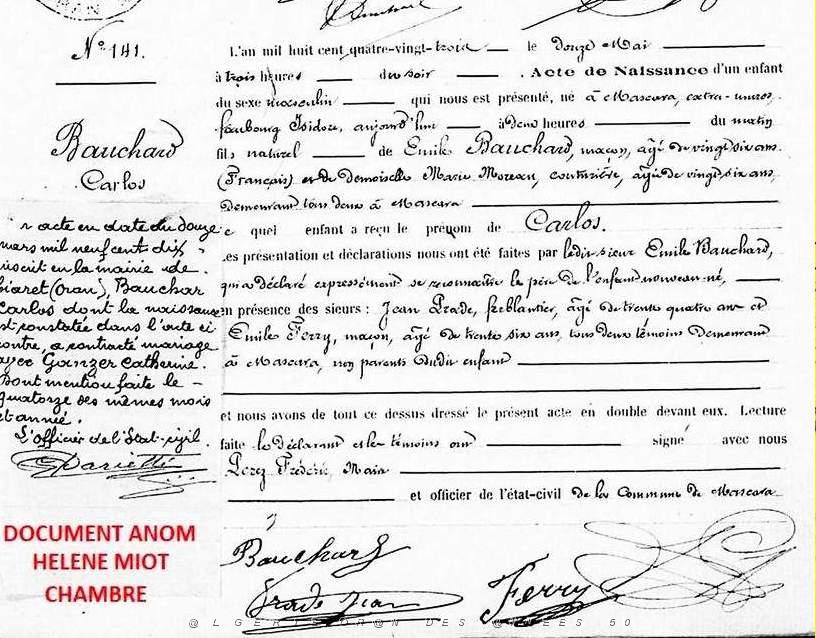 N° 141.
Bauchard
Carlos
L'an mil huit cent quatre-vingt-trois le douze Mai
à trois heures du soir . Acte de Naissance d'un enfant
du sexe masculin qui nous est présenté, né à Mascara, extra-muros,
faubourg Isidore, aujourd'hui à deux heures du matin
fils naturel de Emile Bauchard, maçon, âgé de vingt six ans
(Français) et de Demoiselle Marie Moreau, couturière, âgée de vingt six ans,
demeurant tous deux à Mascara
e quel enfant a reçu le prénom de Carlos.
es présentation et déclarations nous ont été faites par ledit sieur Emile Bauchard,
qui a déclaré expressément se reconnaître le père de l'enfant nouveau-né,
en présence des sieurs : Jean Prade, ferblantier, âgé de trente quatre ans et
Emile Ferry, maçon, âgé de trente six ans, tous deux témoins demeurant
à Mascara, non parents dudit enfant
et nous avons de tout ce dessus dressé le présent acte en double devant eux. Lecture
faite le déclarant et les témoins ont signé avec nous
Perez Frédéric, Maire
et officier de l'état-civil de la Commune de Mascara
acte en date du douze
mars mil neuf cent dix
inscrit en la mairie de
iaret (Oran), Bauchar
Carlos dont la naissance
st constatée dans l'acte ci
contre, a contracté mariage
avec Ganzer Catherine.
Dont mention faite le
quatorze des mêmes mois
et année.
L'officier de l'État-civil.
DOCUMENT ANOM
HELENE MIOT
CHAMBRE
Bauchard
Prade Jean
Ferry
@ L G E R I E O R @ N D E S @ N N E E S 5 0